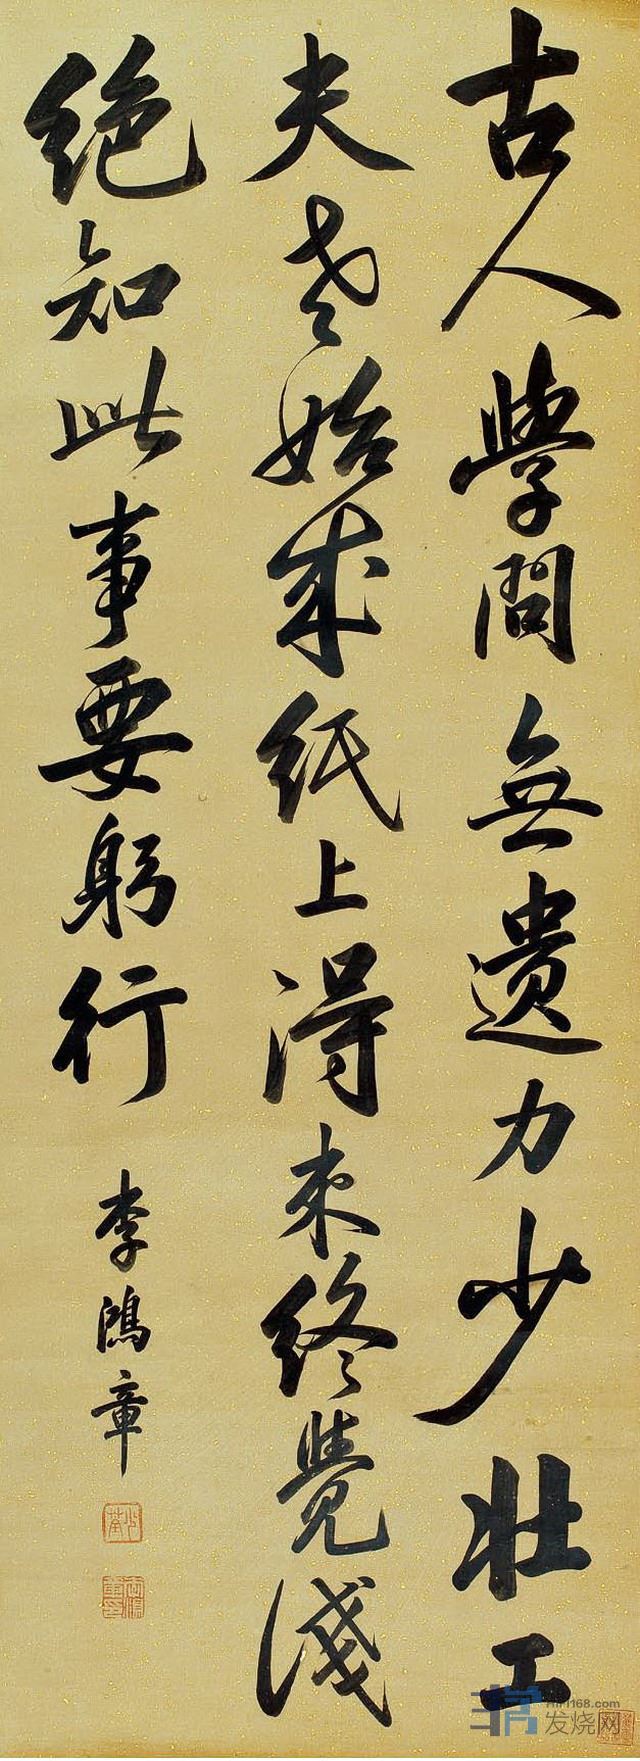 古人學問無遺力少壯工
夫老始成紙上得来終覺淺
絕知此事要躬行
李鴻章
Hifi168.com
发烧网